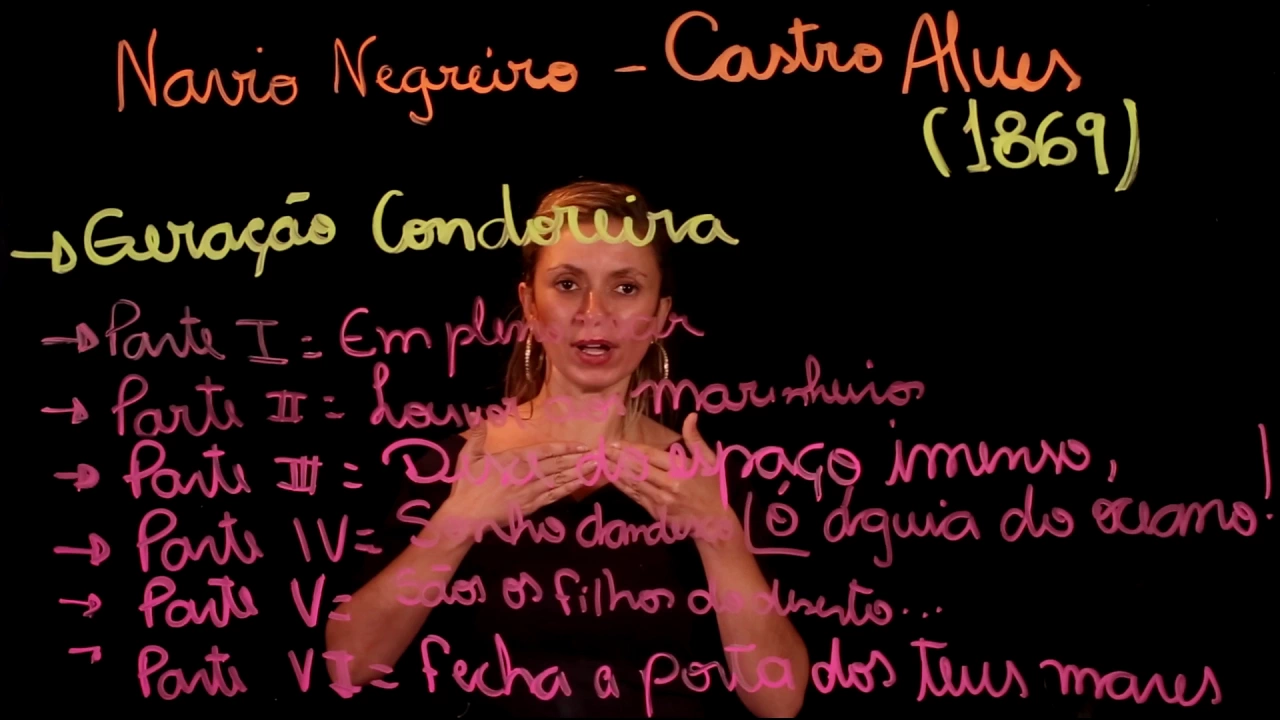 Navio Negreiro - Castro Alves
(1869)
→ Geração Condoreira
→ Parte I = Em pleno mar
→ Parte II = Louvor aos marinheiros
→ Parte III = Desce do espaço imenso,
[ó águia do oceano!
→ Parte IV = Sonho dantesco
→ Parte V = São os filhos do deserto...
→ Parte VI = Fecha a porta dos teus mares